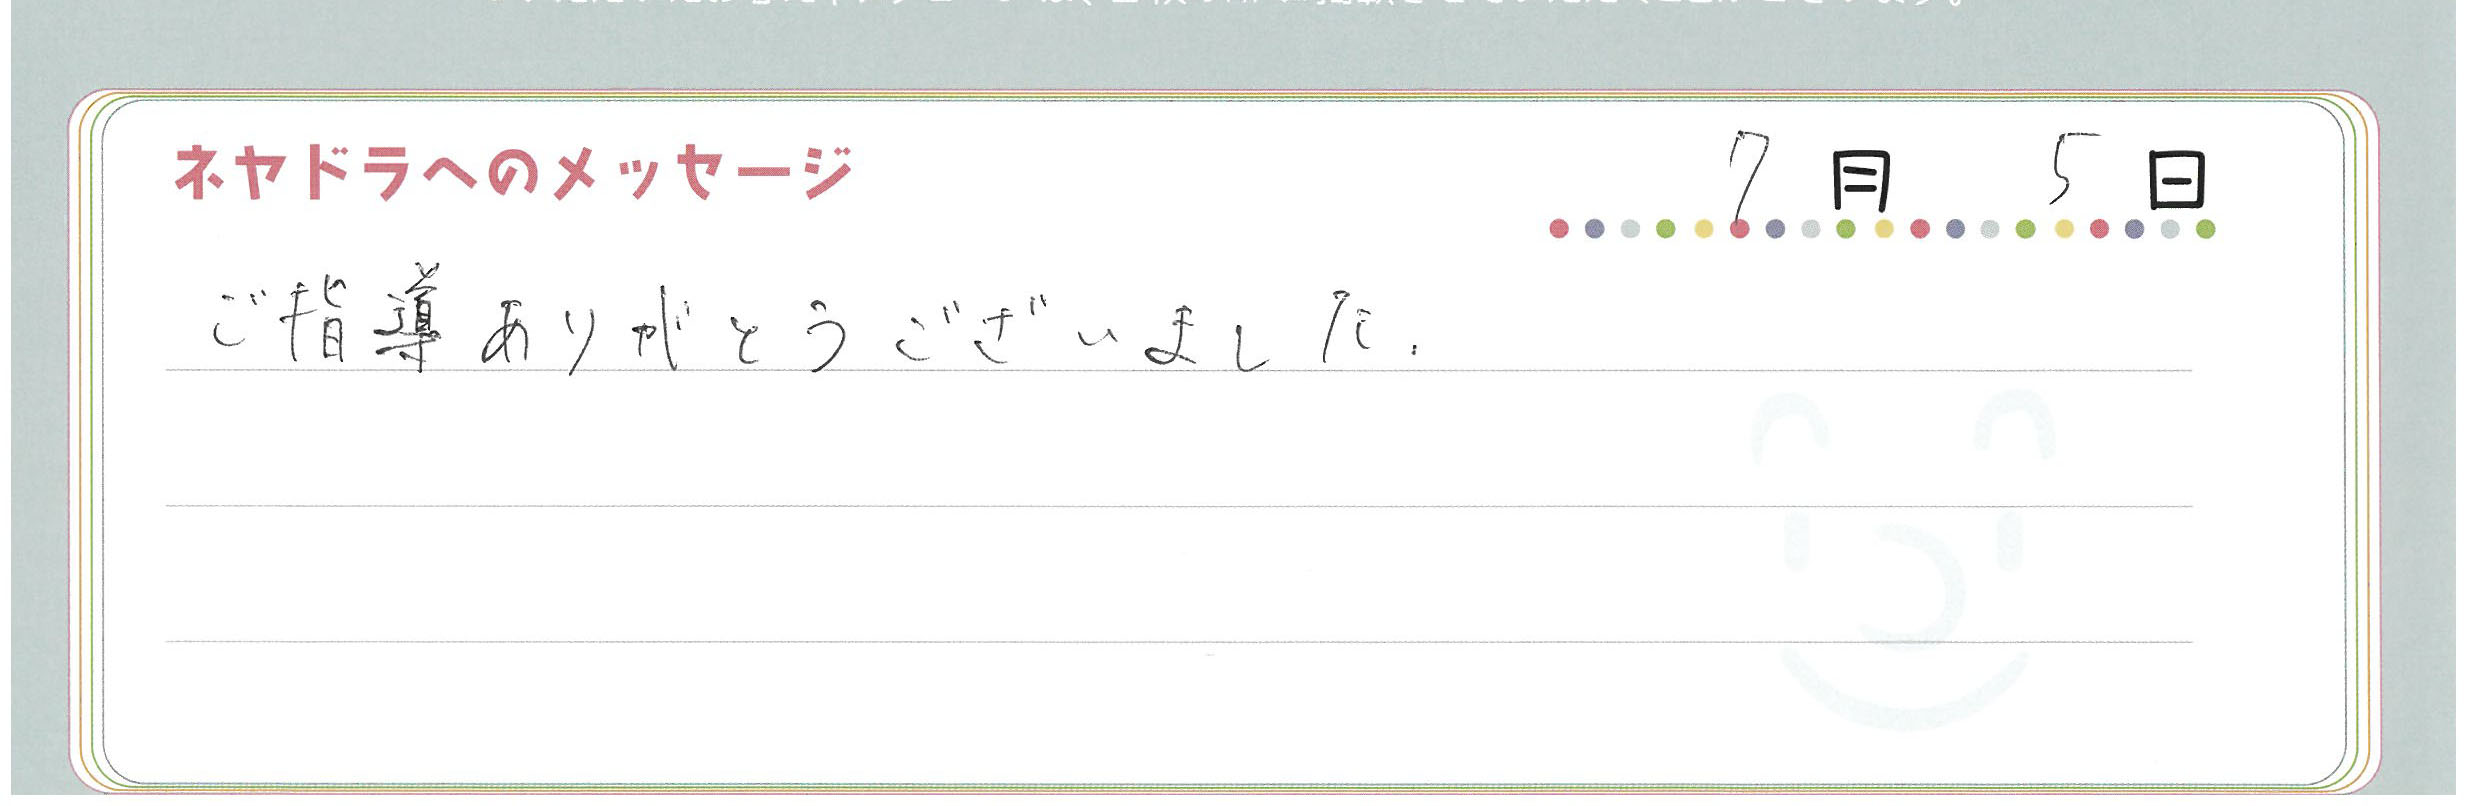 ネヤドラへのメッセージ
7月 5日
ご指導ありがとうございました.